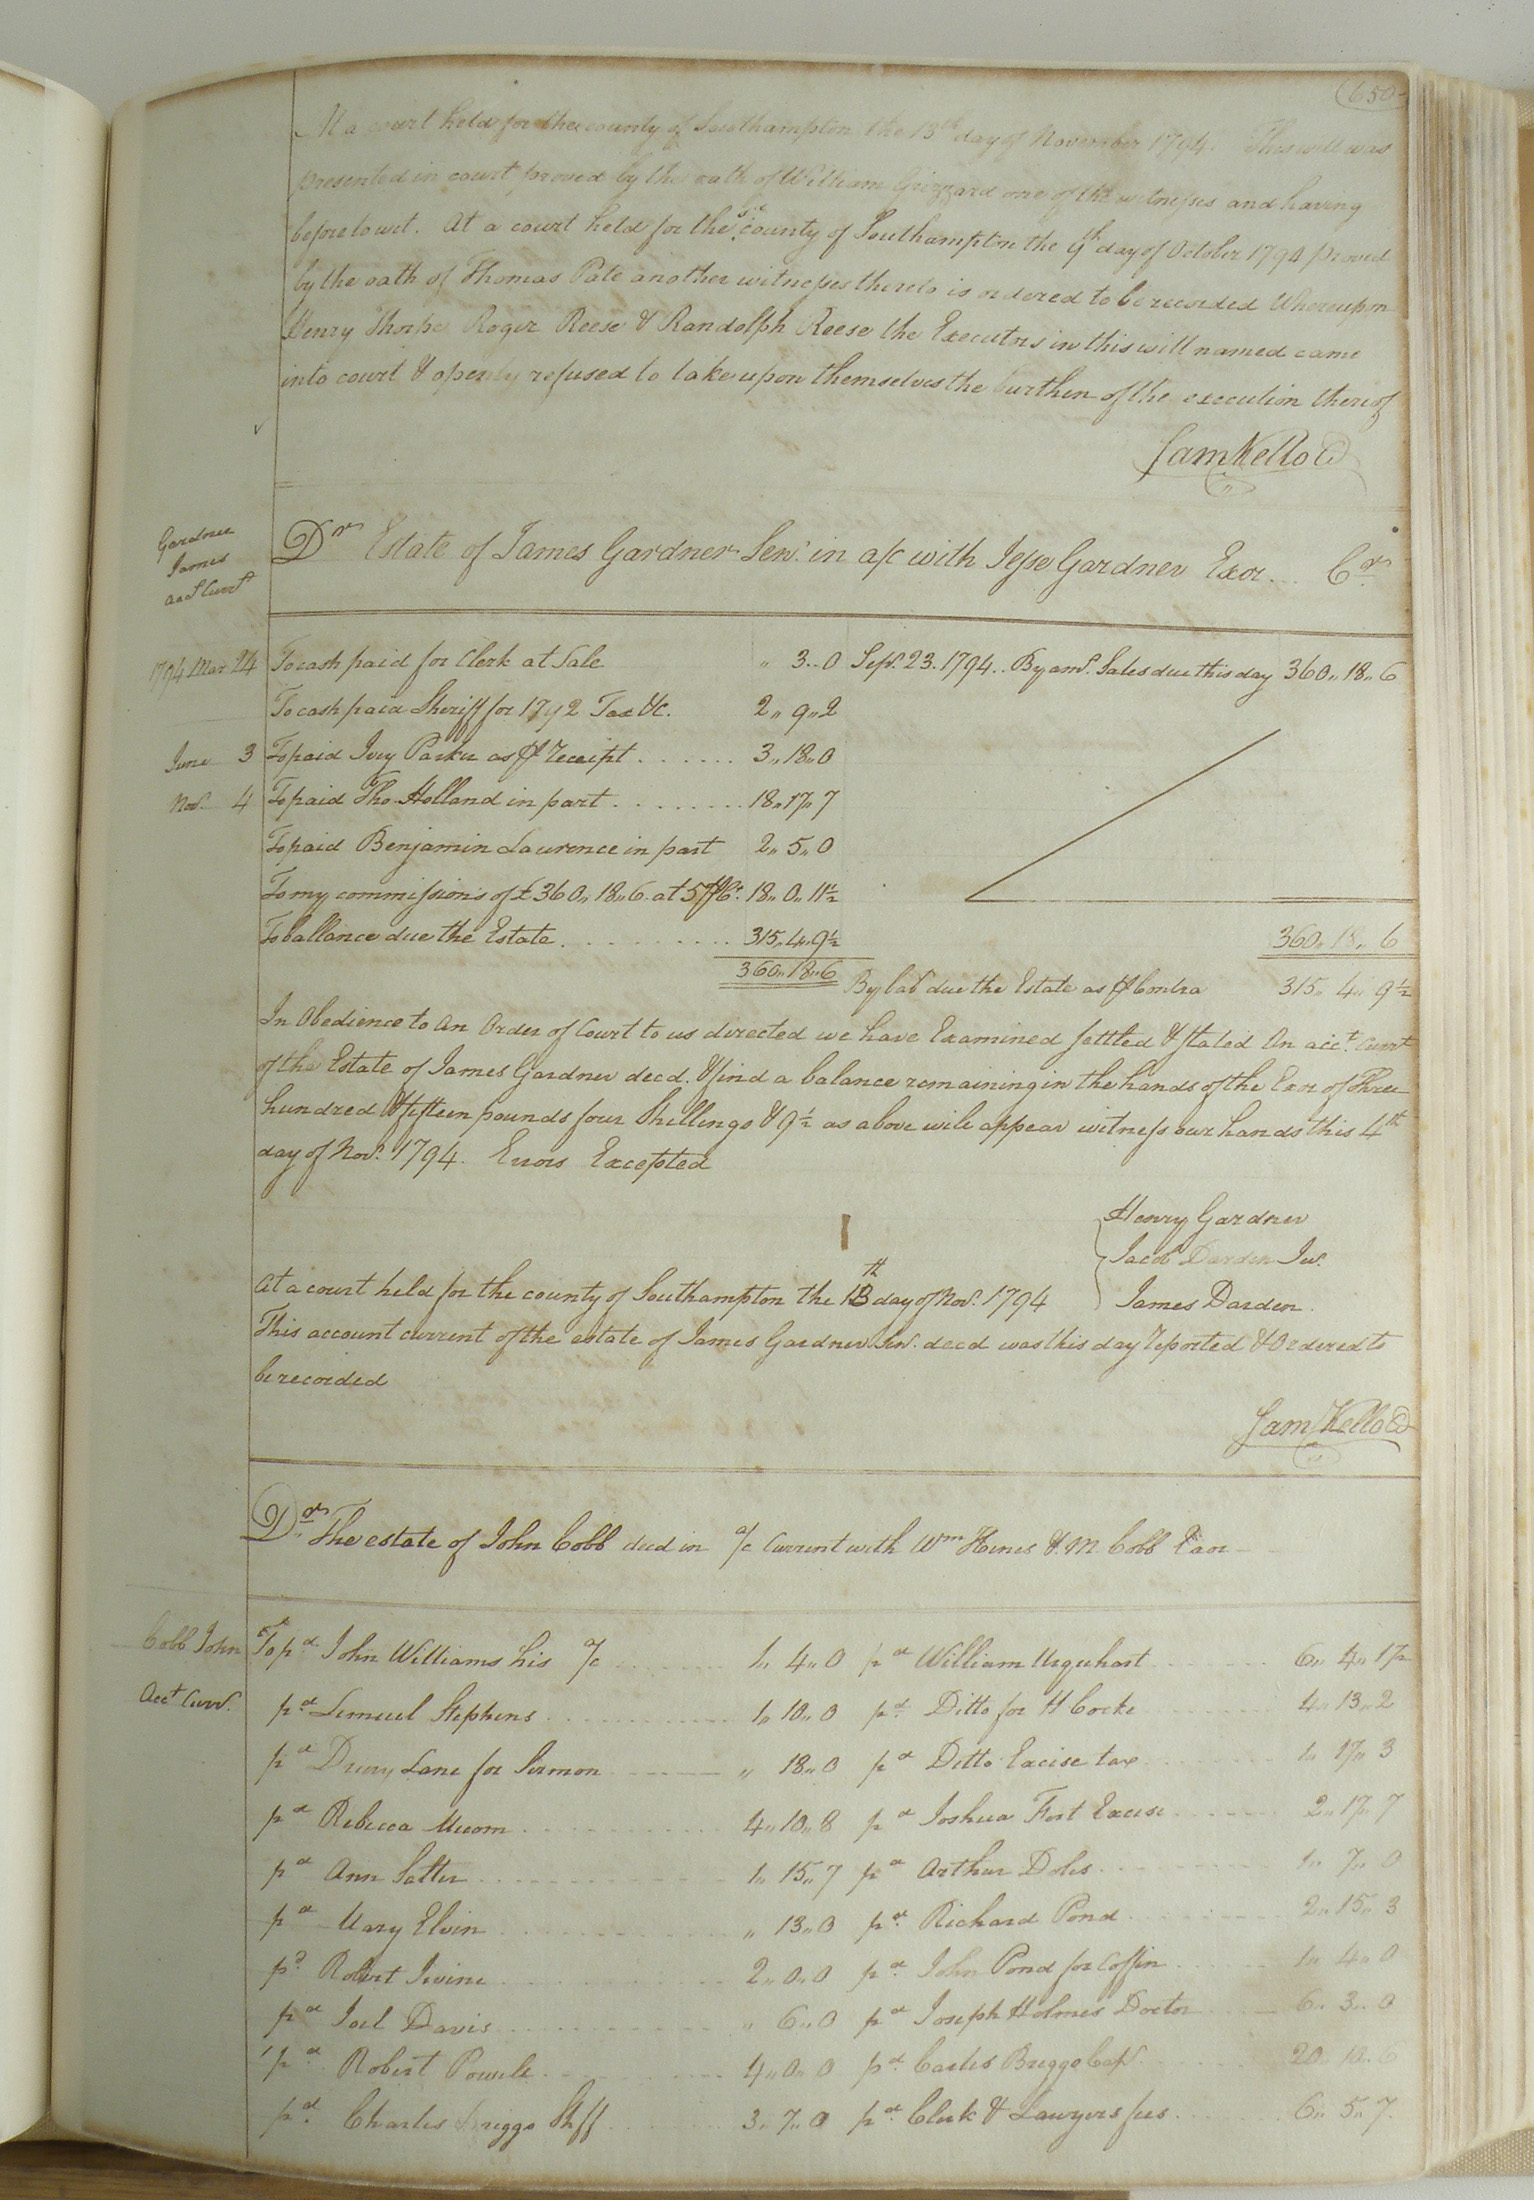 650
At a court held for the county of Southampton the 13th day of November 1794. This will was
presented in court proved by the oath of William Grizzard one of the witnesses and having
before to wit. At a court held for the sd county of Southampton the 9th day of October 1794 proved
by the oath of Thomas Pate another witnesses thereto is ordered to be recorded Whereupon
Henry Thorpe Roger Reese & Randolph Reese the Executors in this will named came
into court & openly refused to take upon themselves the burthen of the execution thereof
Sam Kello C
Gardner
James
acct Currt
Dr Estate of James Gardner Senr. in a/c with Jesse Gardner Exor... Cr
1794 Mar 24 To cash paid for Clerk at Sale " 3..0 Sept. 23. 1794.. By amt. Sales due this day 360,, 18,, 6
To cash paid Sheriff for 1792 Tax &c. 2,, 9,, 2
June 3 To paid Ivey Parker as pr receipt ...... 3,, 18,, 0
Novr. 4 To paid Tho. Holland in part ........ 18,, 17,, 7
To paid Benjamin Lawrence in part 2,, 5,, 0
To my commissions of £360,, 18,, 6. at 5 pr Ct. 18,, 0,, 11½
To ballance due the Estate ......... 315,, 4,, 9½ 360,, 18,, 6
360,, 18,, 6 By bal due the Estate as pr Contra 315,, 4,, 9½
In Obedience to An Order of Court to us directed we have Examined settled & stated An acct. Currt
of the Estate of James Gardner decd. & find a balance remaining in the hands of the Exor of Three
hundred & fifteen pounds four Shillings & 9½ as above will appear witness our hands this 4th
day of Novr. 1794. Errors Excepted
Henry Gardner
Jacob Darden Jur.
James Darden.
At a court held for the county of Southampton the 13th day of Novr. 1794
This account current of the estate of James Gardner Senr. decd was this day reported & Ordered to
be recorded
Sam Kello C
Dr. The estate of John Cobb decd in a/c Current with Wm Hines & M. Cobb Exor
Cobb John
Acct Currt.
To pd. John Williams his a/c ...... 1,, 4,, 0 pd William Urquhart ...... 6,, 4,, 1½
pd Lemuel Stephens ...... 1,, 10,, 0 pd. Ditto for H Cocke ...... 4,, 13,, 2
pd Drury Lane for Sermon ...... ,, 18,, 0 pd Ditto Excise tax ...... 1,, 17,, 3
pd Rebecca Mecom ...... 4,, 10,, 8 pd Joshua Fort Excise ...... 2,, 17,, 7
pd Ann Salter ...... 1,, 15,, 7 pd Arthur Doles ...... 1,, 7,, 0
pd Mary Elvin ...... ,, 13,, 0 pd. Richard Pond ...... 2,, 15,, 3
pd Robert Irvine ...... 2,, 0,, 0 pd. John Pond for Coffin ...... 1,, 4,, 0
pd Joel Davis ...... ,, 6,, 0 pd Joseph Holmes Doctor ...... 6,, 3,, 0
pd. Robert Powell ...... 4,, 0,, 0 pd Carles Briggs ...... 20,, 10,, 6
pd. Charles Briggs Shff ...... 3,, 7,, 0 pd. Clerk & Lawyers fees ...... 6,, 5,, 7